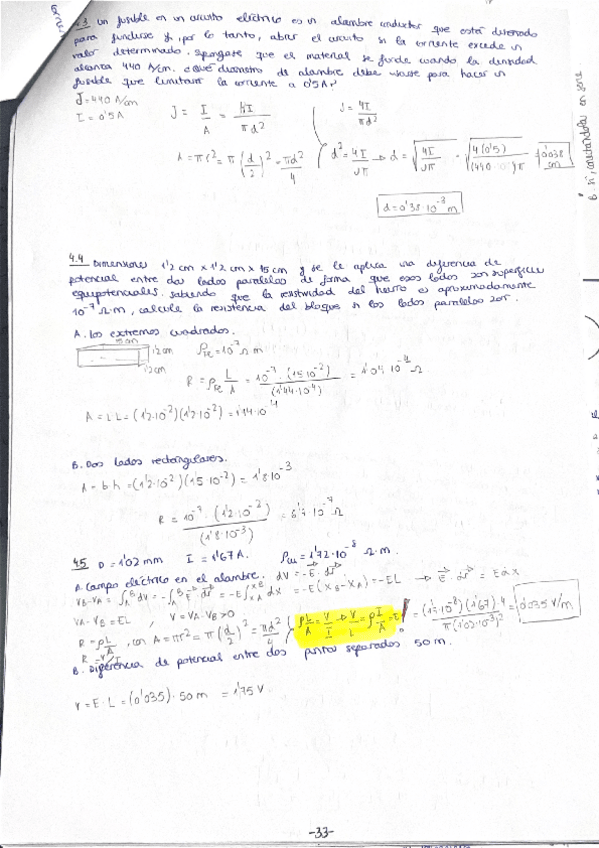 4.3 Un fusible en un circuito eléctrico es un alambre conductor que está diseñado
para fundirse y, por lo tanto, abrir el circuito si la corriente excede un
valor determinado. Supóngase que el material se funde cuando la densidad
alcanza 440 A/cm. ¿Qué diámetro de alambre debe usarse para hacer un
fusible que limitará la corriente a 0'5A?
J = 440 A/cm
I = 0'5 A
J = I/A = 4I/πd²
A = πr² = π(d/2)² = πd²/4
J = 4I/πd²
d² = 4I/Jπ → d = √(4I/Jπ) = √(4(0'5)/(440)π) = 0'038 cm
d = 0'38·10⁻³ m
B. Sí, conectándolas en serie.
4.4 Dimensiones 1'2 cm x 1'2 cm x 15 cm y se le aplica una diferencia de
potencial entre dos lados paralelos de forma que esos lados son superficies
equipotenciales. Sabiendo que la resistividad del hierro es aproximadamente
10⁻⁷ Ω·m, calcule la resistencia del bloque si los lados paralelos son:
A. Los extremos cuadrados.
15 cm
1'2 cm
1'2 cm
ρFe = 10⁻⁷ Ω m
R = ρFe L/A = 10⁻⁷ · (15·10⁻²)/(1'44·10⁻⁴) = 1'04·10⁻⁴ Ω
A = L L = (1'2·10⁻²)(1'2·10⁻²) = 1'44·10⁻⁴
B. Dos lados rectangulares.
A = b·h = (1'2·10⁻²)(15·10⁻²) = 1'8·10⁻³
R = 10⁻⁷ · (1'2·10⁻²)/(1'8·10⁻³) = 6'7·10⁻⁷ Ω
4.5 D = 1'02 mm I = 1'67 A. ρCu = 1'72·10⁻⁸ Ω·m.
A. Campo eléctrico en el alambre. dV = -E·dr
VB-VA = ∫ᴬᴮ dV = -∫ᴬᴮ E·dr = -E∫ dx = -E(XB-XA) = -EL → E·dr = E dx
VA-VB = EL, V = VA-VB > 0
R = ρL/A, con A = πr² = π(d/2)² = πd²/4
R = V/I
ρL/A = V/I → V/L = ρ I/A = E
= 0'035 V/m
B. Diferencia de potencial entre dos puntos separados 50 m.
V = E·L = (0'035)·50 m = 1'75 V
-33-